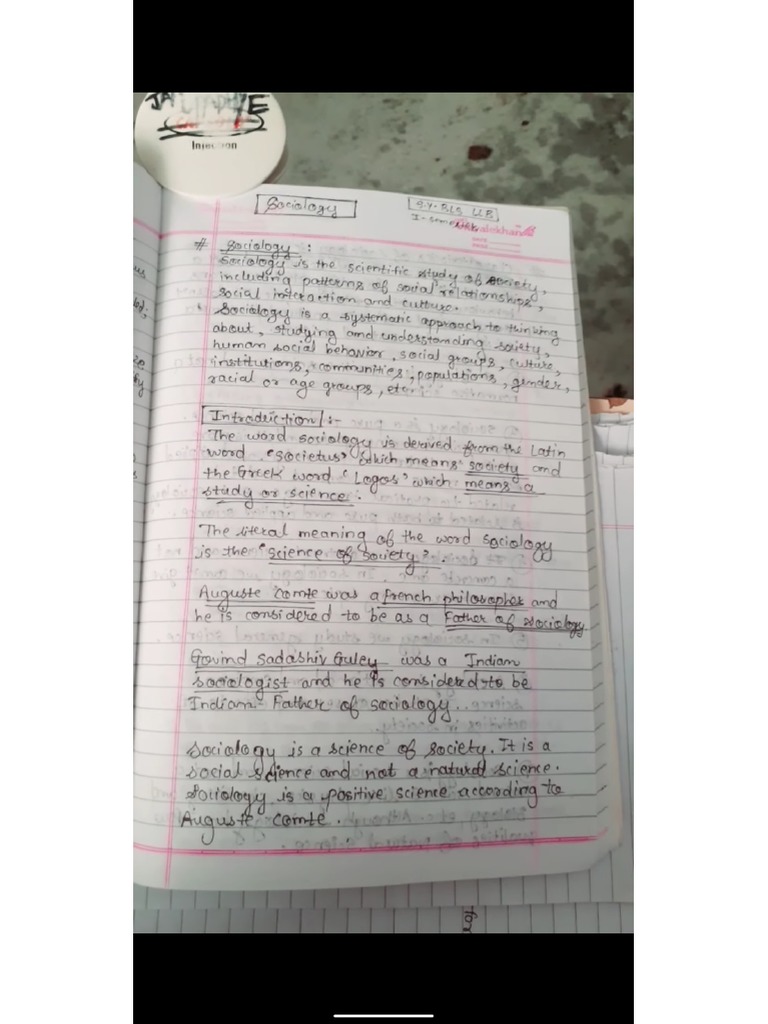 Injection
Sociology
F.Y. BLS LLB
I - semester
# Sociology :
Sociology is the scientific study of society,
including patterns of social relationships,
social interaction and culture.
Sociology is a systematic approach to thinking
about, studying and understanding society,
human social behavior, social groups, culture,
institutions, communities, populations, gender,
racial or age groups, etc.
Introdriction :-
The word sociology is derived from the Latin
word 'societus' which means society and
the Greek word 'Logos' which means a
study or science.
The literal meaning of the word sociology
is the "science of society".
Auguste Comte was a french philosopher and
he is considered to be as a Father of sociology
Govind Sadashiv Guley was a Indian
sociologist and he is considered to be
Indian Father of sociology..
Sociology is a science of society. It is a
social science and not a natural science.
Sociology is a positive science according to
Auguste Comte.